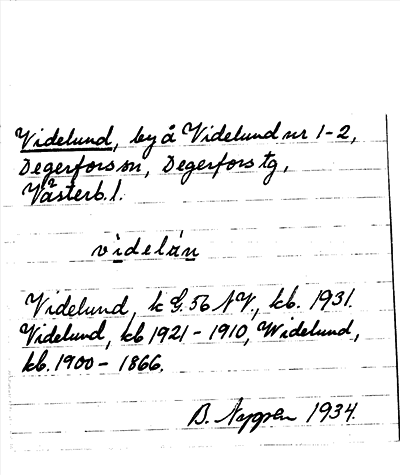 Videlund, by å Videlund nr 1-2,
Degerfors sn, Degerfors tg,
Västerb. l.
vìdelán
Videlund, k G. 56 NV., kb. 1931.
Videlund, kb 1921-1910, Widelund,
kb. 1900-1866.
B. 1934.